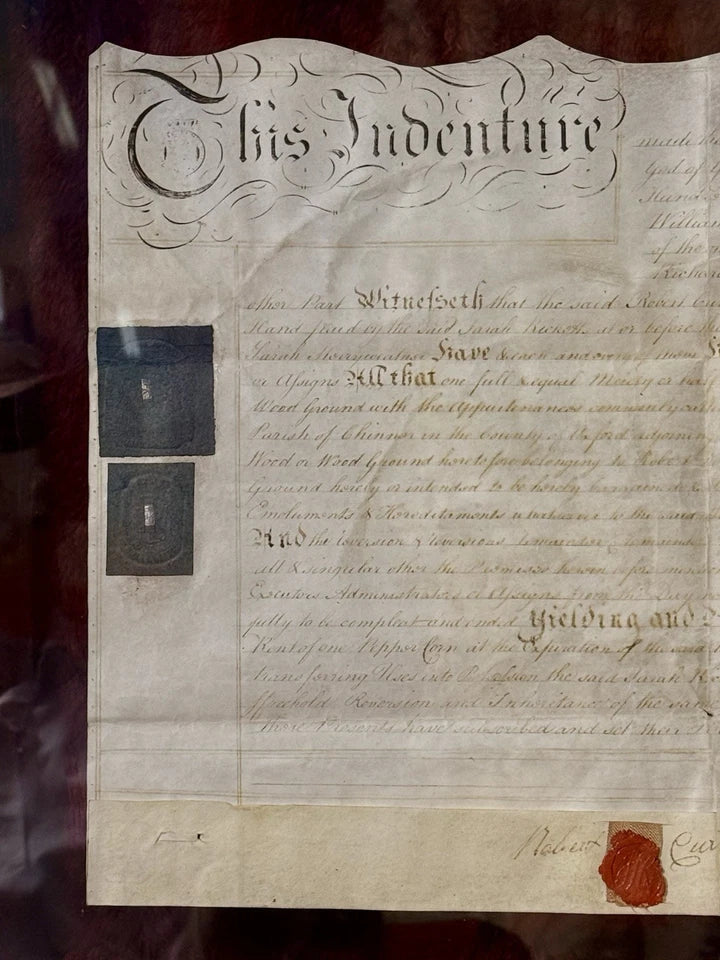 This Indenture
made
God of
William
of the
Richard
other Part Witnesseth that the said Robert
Hand paid by the said Sarah Rickett at or before
Sarah Have
or Assigns All that one full & equal Moiety or half
Wood Ground with the Appurtenances commonly
Parish of Chinnor in the County of Oxford adjoining
Wood or Wood Ground heretofore belonging to Robert
Ground hereby or intended to be hereby
Emoluments & Hereditaments whatsoever to the said
And the Reversion & Reversions Remainder Remainders
all & singular other the Premises herein before
Executors Administrators or Assigns from the Day
fully to be compleat and ended Yielding and
Rent of one Pepper Corn at the Expiration of the said
transferring Uses into Possession the said Sarah
ffreehold Reversion and Inheritance of the same
these Presents have subscribed and set their
Robert Cur